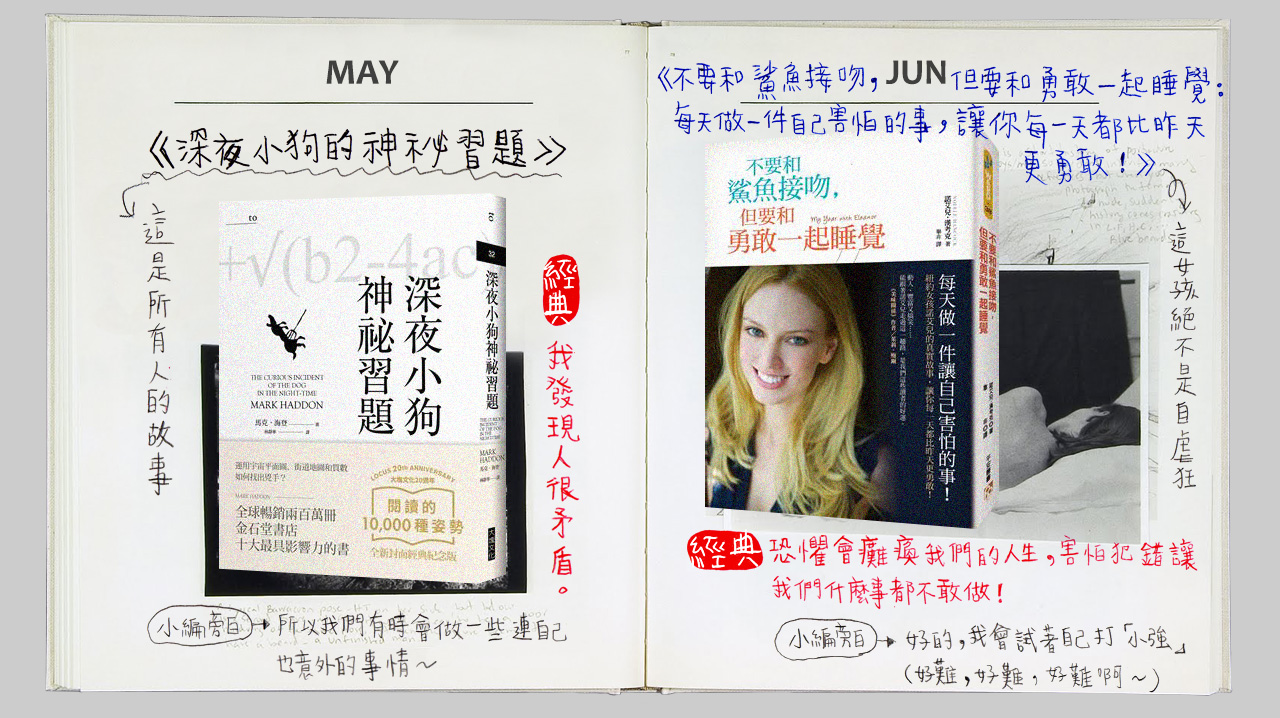 MAY
《深夜小狗的神祕習題》
這是所有人的故事
to
+√(b2-4ac
深夜小狗
神祕習題
THE CURIOUS INCIDENT
OF THE DOG
IN THE NIGHT-TIME
MARK HADDON
馬克·海登
運用宇宙平面圖、街道地圖和質數
如何找出兇手？
MARK HADDON
全球暢銷兩百萬冊
金石堂書店
十大最具影響力的書
LOCUS 20th ANNIVERSARY
大塊文化20週年
閱讀的
10,000種姿勢
全新封面經典紀念版
to
32
深夜小狗神祕習題
THE CURIOUS INCIDENT
OF THE DOG IN THE
NIGHT-TIME
MARK
HADDON
大塊文化
經典
我發現人很矛盾。
小編旁白
所以我們有時會做一些連自己
也意外的事情～
JUN
《不要和鯊魚接吻，但要和勇敢一起睡覺：
每天做一件自己害怕的事，讓你每一天都比昨天
更勇敢！》
這女孩絕不是自虐狂
不要和
鯊魚接吻，
但要和
勇敢一起睡覺
My Year with Eleanor
諾艾兒·漢考克 著
每天做一件讓自己害怕的事！
紐約女孩諾艾兒的真實故事，讓你每一天都比昨天更勇敢！
不要和鯊魚接吻，
但要和勇敢一起睡覺
經典
恐懼會癱瘓我們的人生，害怕犯錯讓
我們什麼事都不敢做！
小編旁白
好的，我會試著自己打「小強」
（好難，好難，好難啊～）